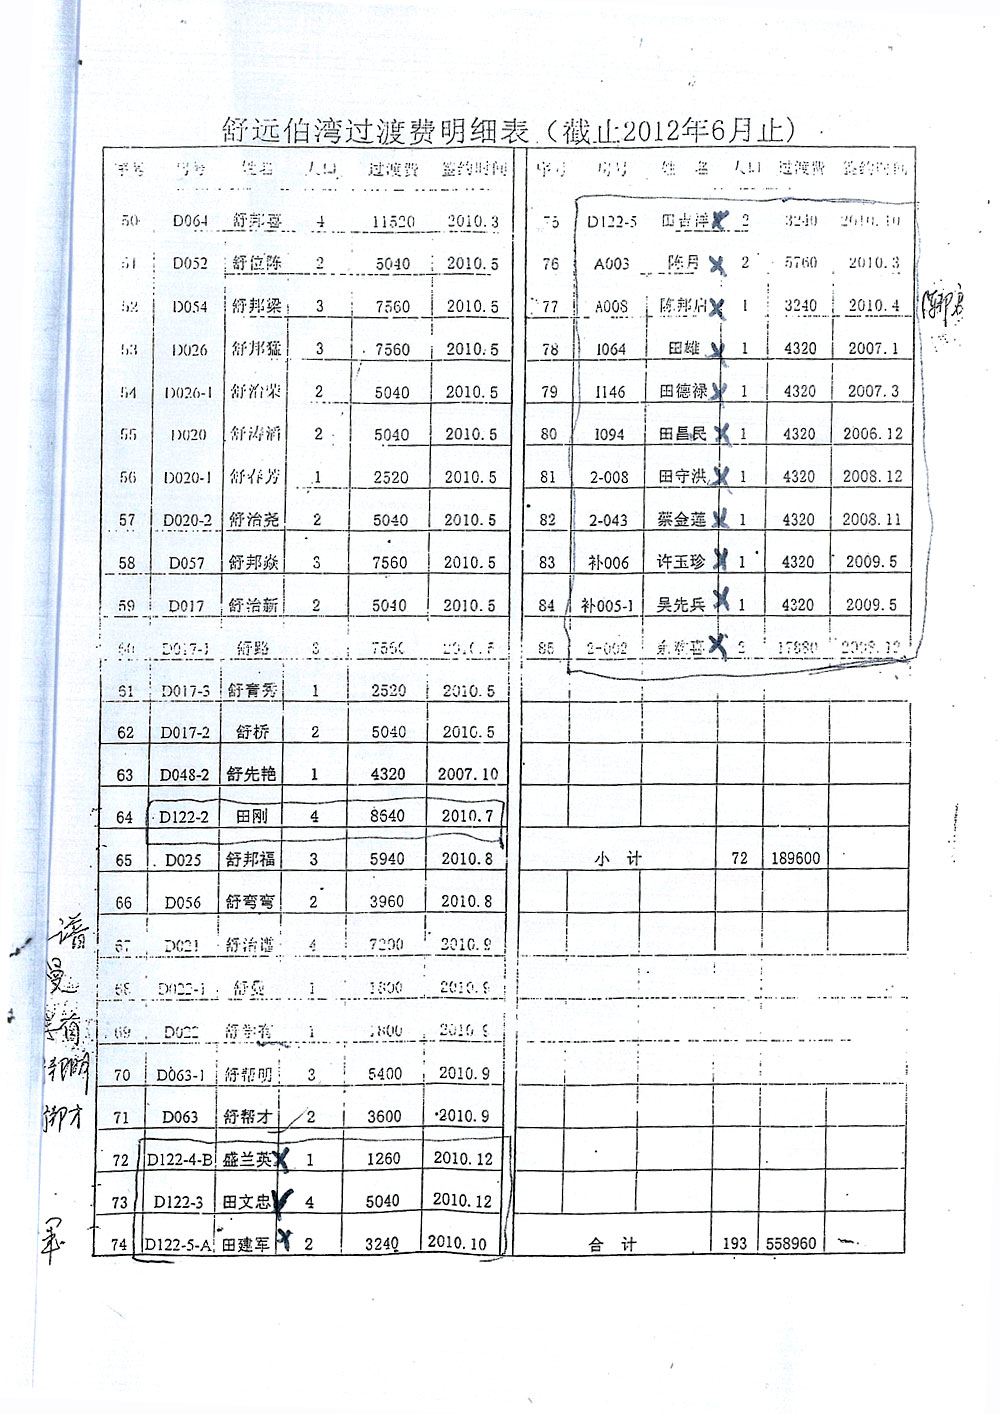 舒远伯湾过渡费明细表（截止2012年6月止）
序号 房号 姓名 人口 过渡费 签约时间
50 D064 舒邦喜 4 11520 2010.3
51 D052 舒位陈 2 5040 2010.5
52 D054 舒邦梁 3 7560 2010.5
53 D026 舒邦猛 3 7560 2010.5
54 D026-1 舒治荣 2 5040 2010.5
55 D020 舒涛滔 2 5040 2010.5
56 D020-1 舒春芳 1 2520 2010.5
57 D020-2 舒治尧 2 5040 2010.5
58 D057 舒邦焱 3 7560 2010.5
59 D017 舒治新 2 5040 2010.5
60 D017-1 舒路 3 7560 2010.5
61 D017-3 舒青秀 1 2520 2010.5
62 D017-2 舒桥 2 5040 2010.5
63 D048-2 舒先艳 1 4320 2007.10
64 D122-2 田刚 4 8640 2010.7
65 D025 舒邦福 3 5940 2010.8
66 D056 舒弯弯 2 3960 2010.8
67 D021 舒治谱 4 7200 2010.9
68 D022-1 舒曼 1 1800 2010.9
69 D022 舒 1 1800 2010.9
70 D063-1 舒帮明 3 5400 2010.9
71 D063 舒帮才 2 3600 2010.9
72 D122-4-B 盛兰英 1 1260 2010.12
73 D122-3 田文忠 4 5040 2010.12
74 D122-5-A 田建军 2 3240 2010.10
序号 房号 姓名 人口 过渡费 签约时间
75 D122-5 田吉洋 2 3240 2010.10
76 A003 陈月 2 5760 2010.3
77 A008 陈邦启 1 3240 2010.4
78 I064 田雄 1 4320 2007.1
79 I146 田德禄 1 4320 2007.3
80 I094 田昌民 1 4320 2006.12
81 2-008 田守洪 1 4320 2008.12
82 2-043 蔡金莲 1 4320 2008.11
83 补006 许玉珍 1 4320 2009.5
84 补005-1 吴先兵 1 4320 2009.5
85 2-002 2 17880 2008.12
小计 72 189600
合计 193 558960
谱
曼
邦才
军